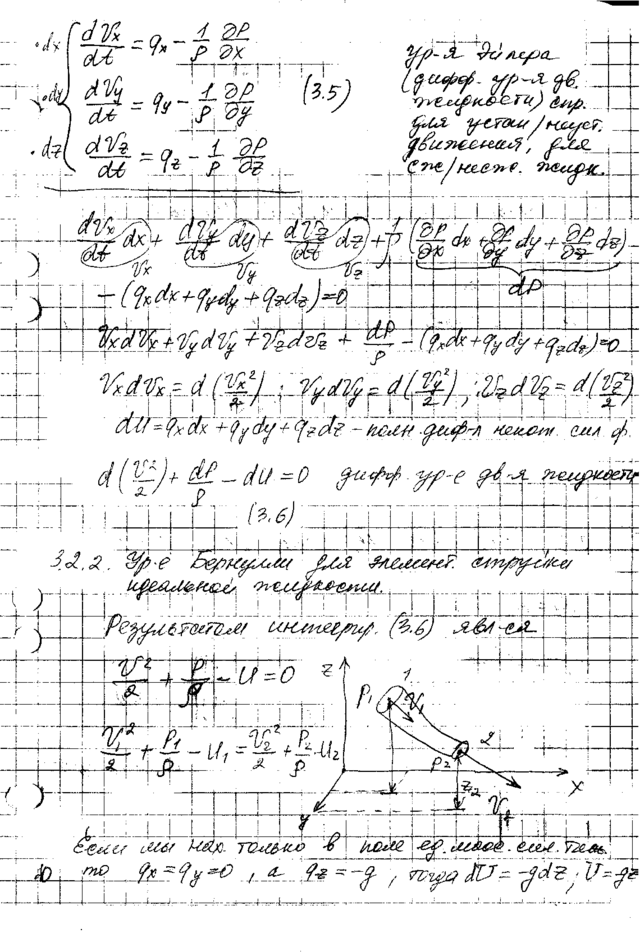 ·dx { dVx/dt = qx − 1/ρ ∂P/∂x
·dy { dVy/dt = qy − 1/ρ ∂P/∂y (3.5)
·dz { dVz/dt = qz − 1/ρ ∂P/∂z
ур-я Эйлера
(дифф. ур-я дв.
жидкости) спр.
для устан/неуст.
движения, для
сж/несж. жидк.
dVx/dt dx + dVy/dt dy + dVz/dt dz + 1/ρ (∂P/∂x dx + ∂P/∂y dy + ∂P/∂z dz) −
Vx Vy Vz dP
− (qxdx + qydy + qzdz) = 0
VxdVx + VydVy + VzdVz + dP/ρ − (qxdx + qydy + qzdz) = 0
VxdVx = d(Vx²/2); VydVy = d(Vy²/2); VzdVz = d(Vz²/2)
dU = qxdx + qydy + qzdz – полн. диф-л некот. сил. ф.
d(V²/2) + dP/ρ − dU = 0 дифф. ур-е дв-я жидкости
(3.6)
3.2.2. Ур-е Бернулли для элемент. струйки
идеальной жидкости.
Результатом интегрир. (3.6) явл-ся
V²/2 + P/ρ − U = 0
V1²/2 + P1/ρ − U1 = V2²/2 + P2/ρ − U2
z
P1 1 V1
2
P2
z2
x
y
Если мы нах. только в поле ед. масс. сил
то qx = qy = 0, а qz = −g, тогда dU = −gdz; U = gz